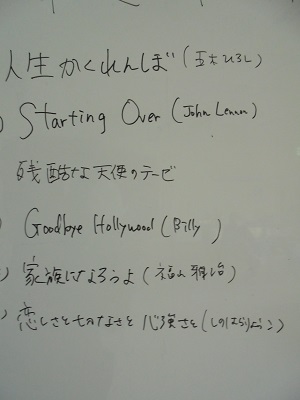 人生かくれんぼ(五木ひろし)
) Starting Over (John Lennon)
残酷な天使のテーゼ
) Goodbye Hollywood (Billy )
) 家族になろうよ (福山雅治)
) 恋しさと せつなさと 心強さと (しのはらりょうこ)